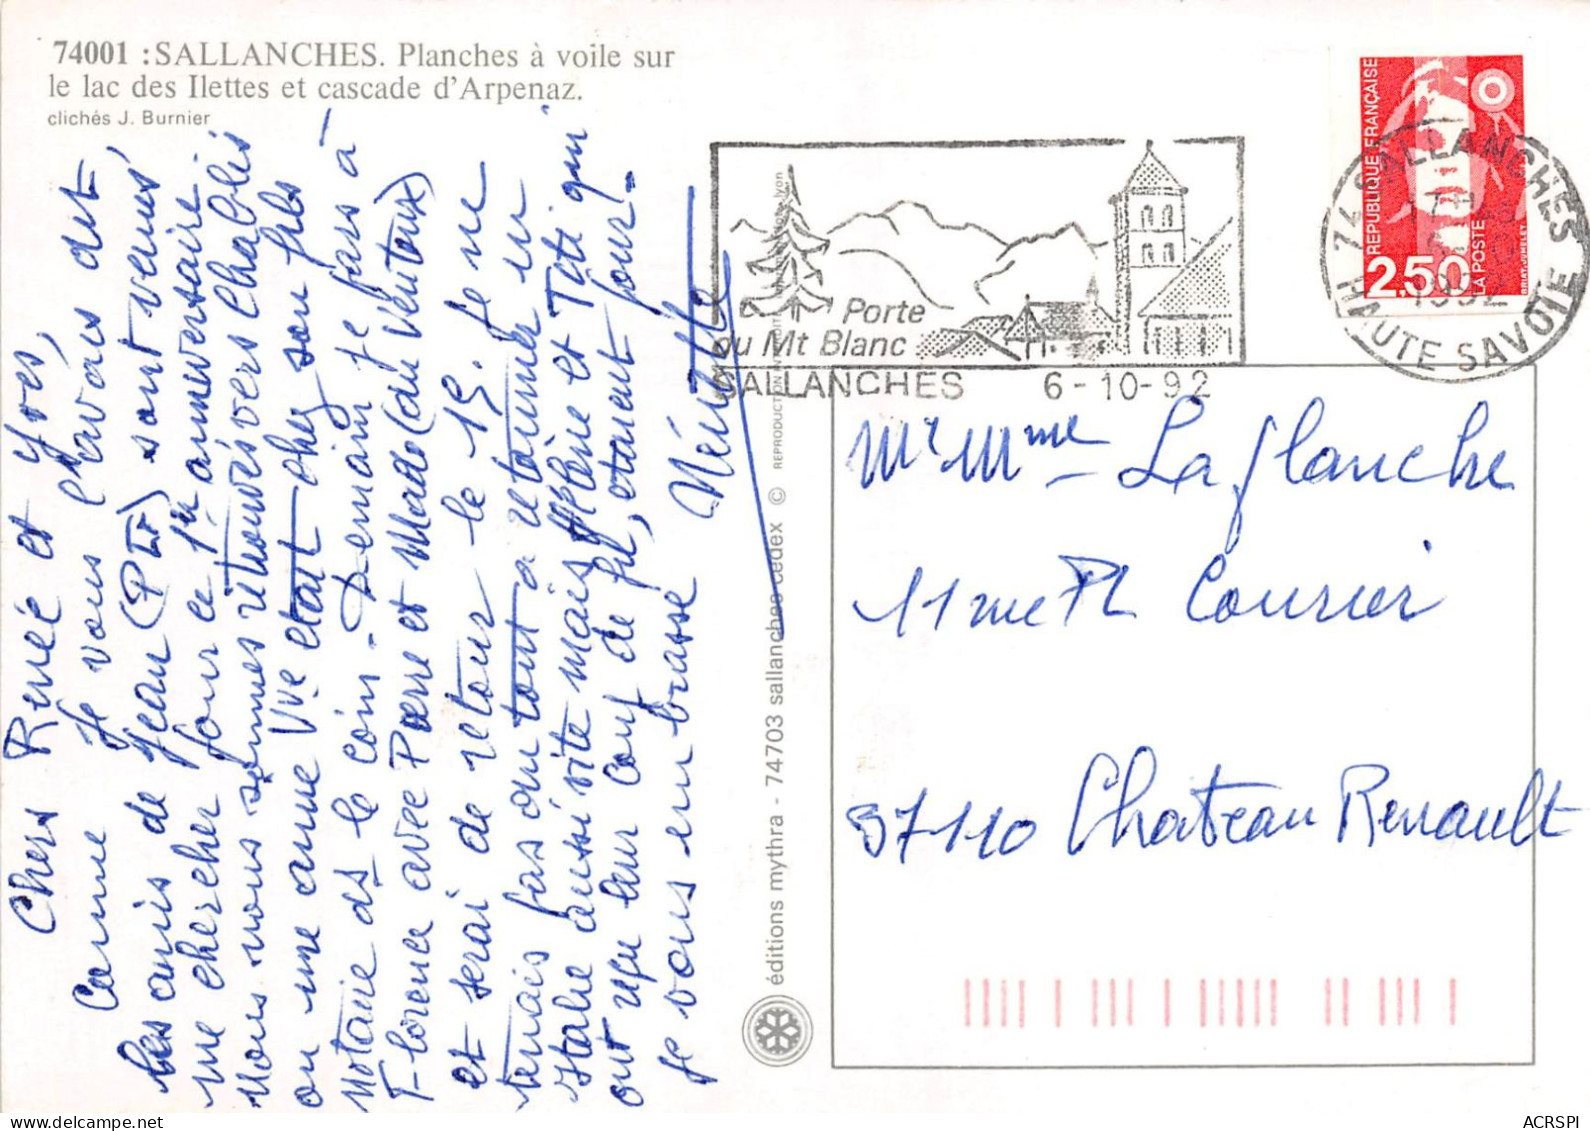 74001 : SALLANCHES. Planches à voile sur
le lac des Ilettes et cascade d'Arpenaz.
clichés J. Burnier
Chers Renée et Yves,
Comme je vous l'avais dit
les amis de Jean (PLF) sont venus
me chercher pour le 1er anniversaire
Nous nous sommes retrouvés vers Chablis
ou une amie Vve était chez son fils
notaire ds le coin. Demain je pars à
Florence avec Pierre et Mado (du Ventoux)
et serai de retour le 15. Je ne
pensais pas du tout à retourner en
Italie aussi vite mais Hélène et Titi qui
ont reçu leur coup de fil, étaient pour!
Je vous embrasse
éditions mythra - 74703 sallanches cedex © REPRODUCTION
lyon
Porte
du Mt Blanc
SALLANCHES 6-10-92
RÉPUBLIQUE FRANÇAISE
2,50
LA POSTE
BRIAT-JUMELET
74 SALLANCHES
17H
1992
HAUTE SAVOIE
Mr Mme Laflanche
11 rue P L Courier
37110 Chateau Renault
ACRSPI